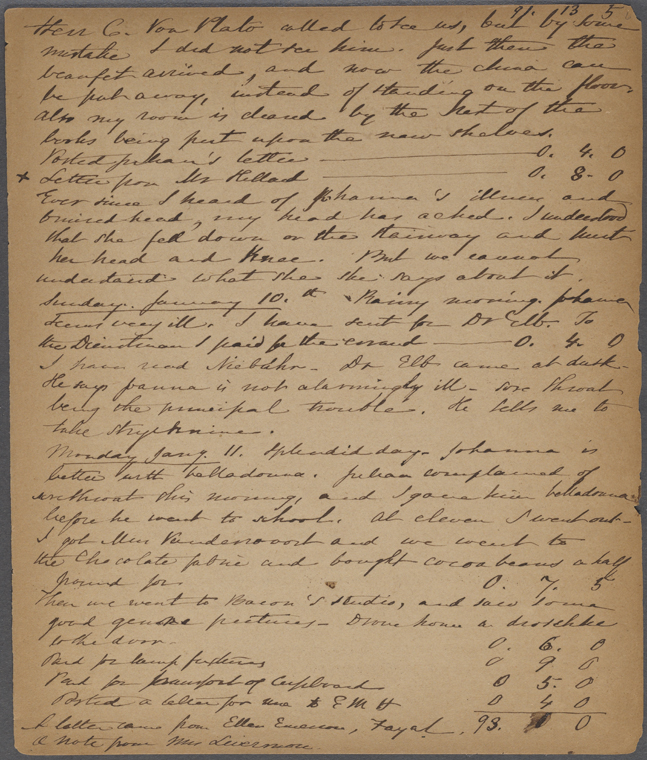 91. 13 5
Herr C. Von Plato called to see us, but by some
mistake I did not see him. Just then the
beaufet arrived, and now the china can
be put away, instead of standing on the floor.
also my room is cleared by the last of the
books being put upon the new shelves.
Posted Julian's letter 0. 4. 0
x Letter from Mr Hillard 0. 8. 0
Ever since I heard of Johanna's illness and
bruised head, my head has ached. I understood
that she fell down on the stairway and hurt
her head and knee. But we cannot
understand what she she says about it.
Sunday. January 10.th Rainy morning. Johanna
seems very ill. I have sent for Dr Elb. To
the Dienstman I paid for the errand 0. 4. 0
I have read Niebuhr. Dr Elb came at dusk.
He says Joanna is not alarmingly ill - sore throat
being the principal trouble. He tells me to
take strychnine.
Monday Jany. 11. Splendid day. Johanna is
better with belladonna. Julian complained of
sorethroat this morning, and I gave him belladonna
before he went to school. At eleven I went out.
I got Miss Vandervoort and we went to
the Chocolate fabric and bought cocoabeans a half
pound for 0. 7. 5
Then we went to Bacon's studio, and saw some
good genre pictures. Drove home a droschke
to the door. 0. 6. 0
Paid for lamp fixtures 0 9 0
Paid for transport of Cupboard 0 5. 0
Posted a letter for me to E M H 0 4 0
A letter came from Ellen Emerson, Fayal. 93. 1 0
A note from Mrs Livermore.